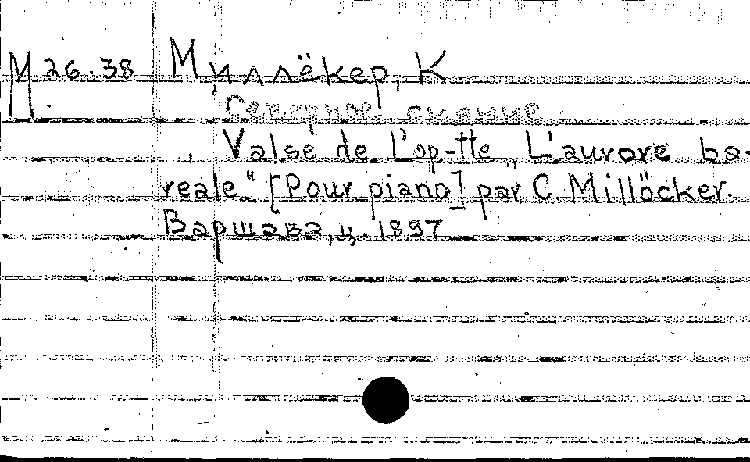 М 26.38 Миллёкер, К
Северное сияние.
Valse de l'op-tte „L'aurore bo-
reale" [Pour piano] par C. Millöcker.
Варшава, ц. 1897